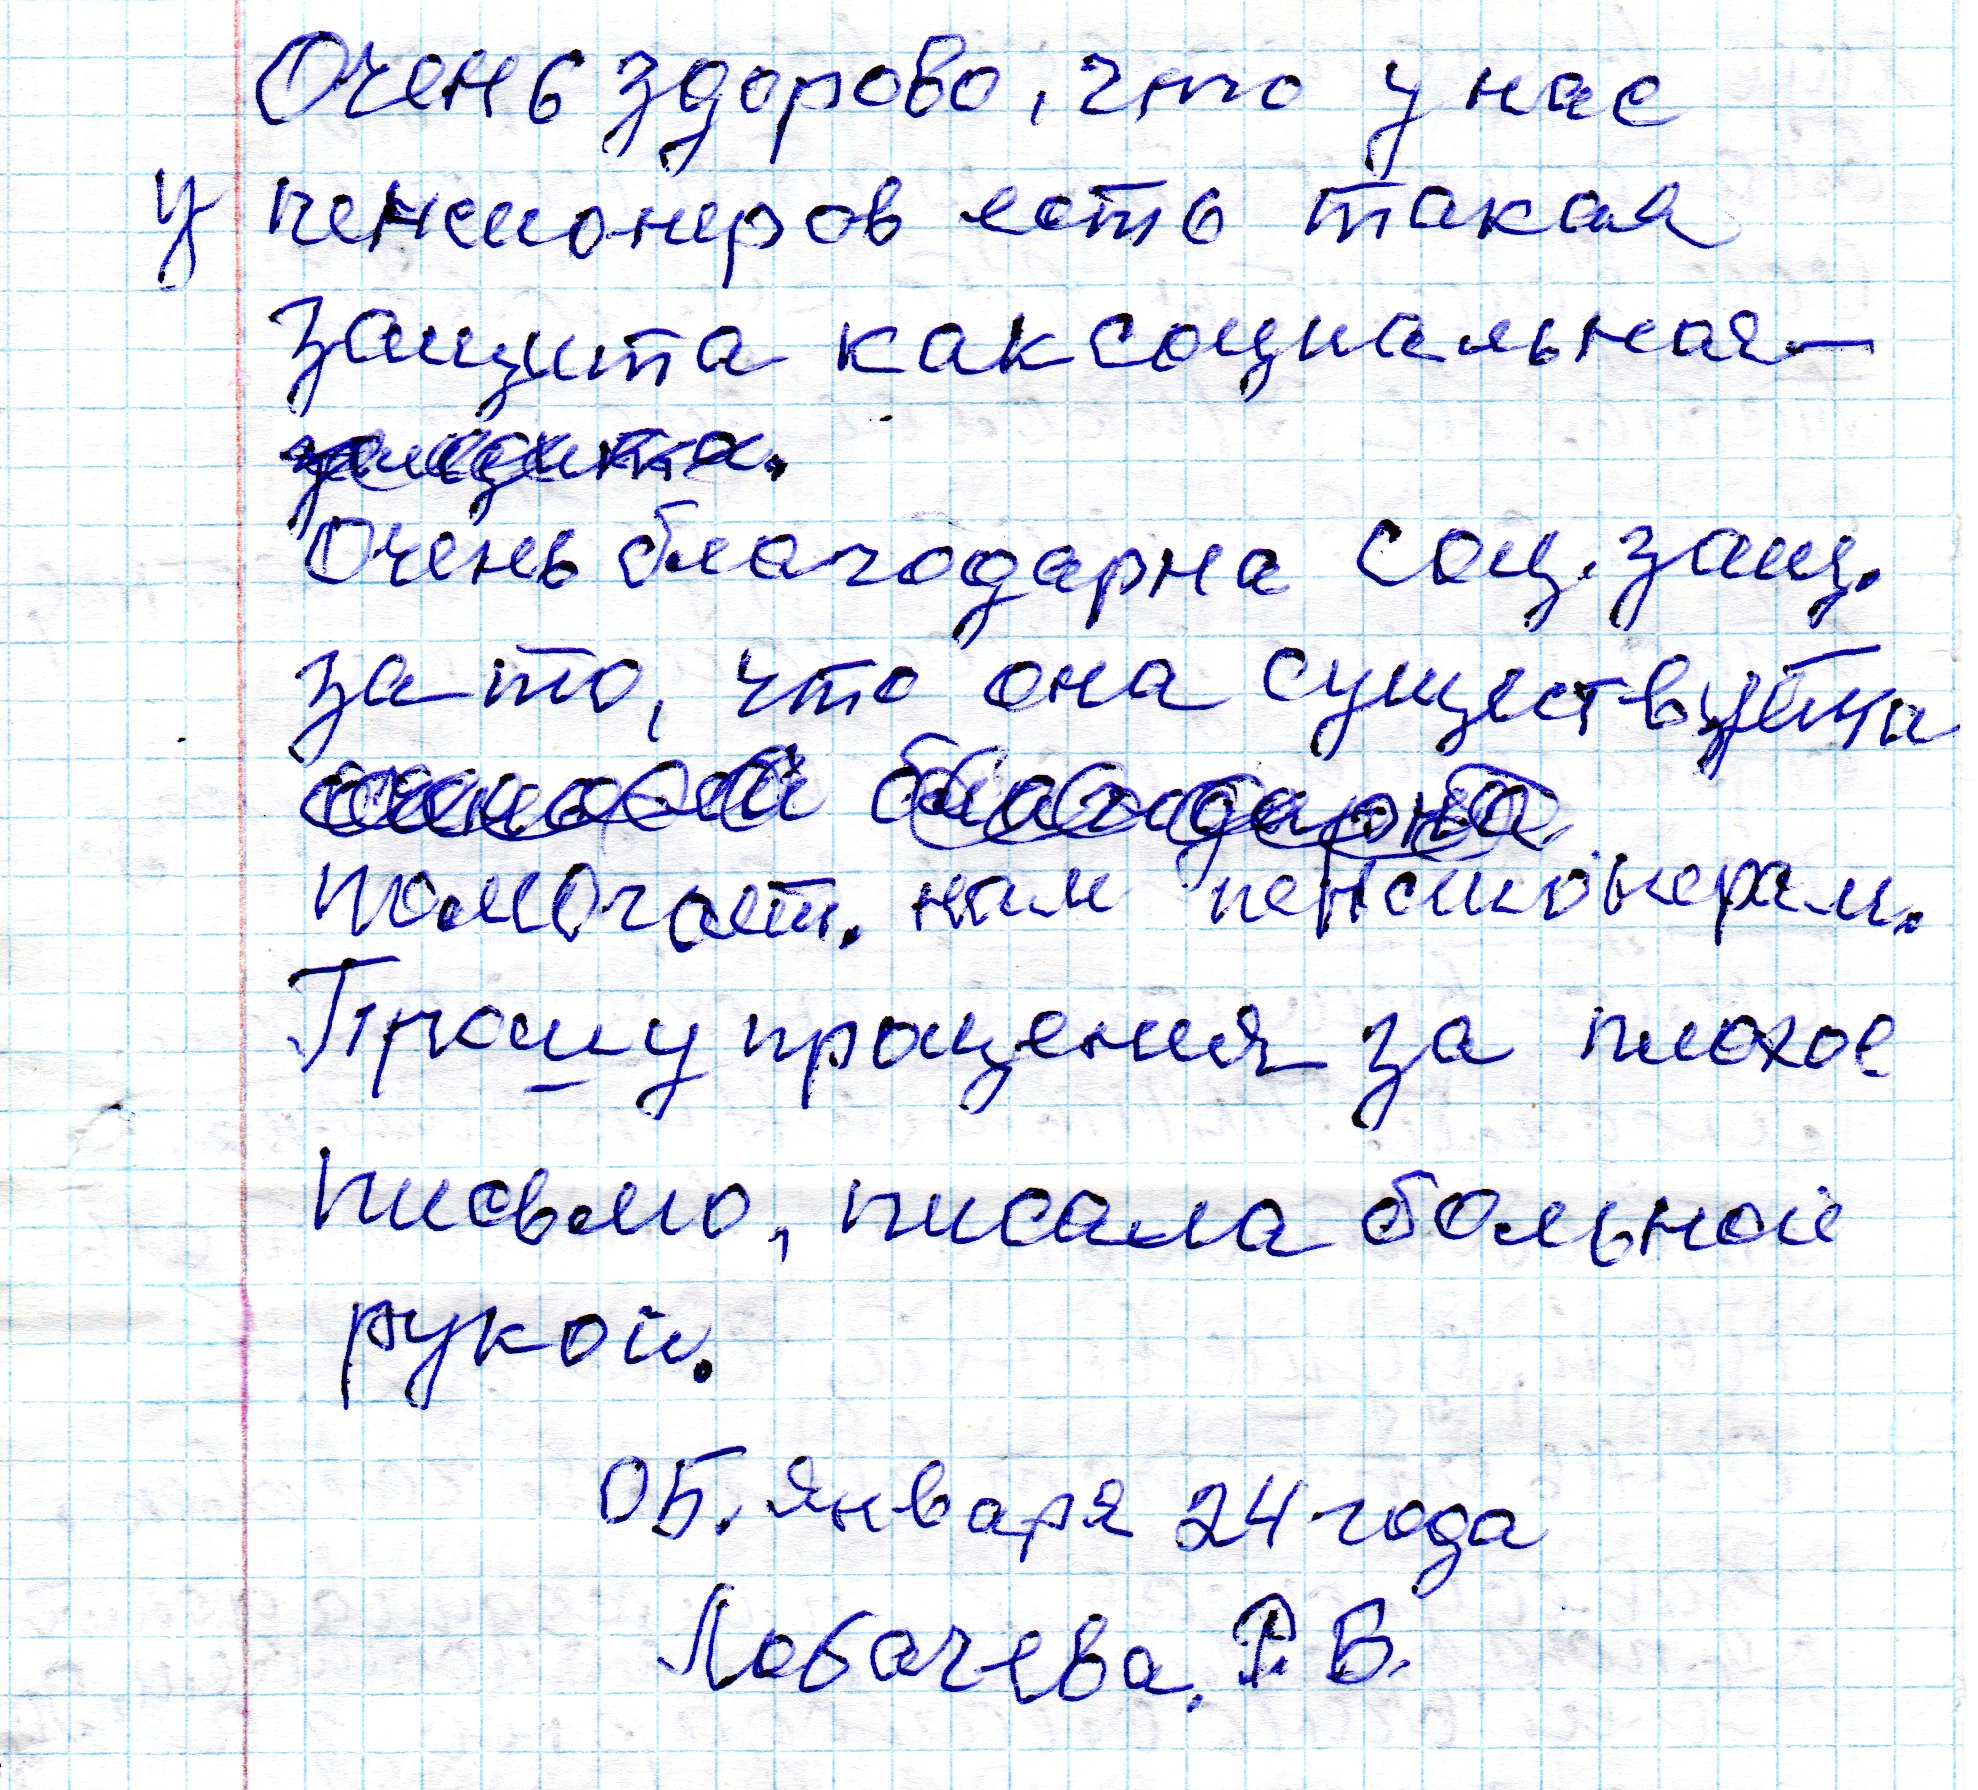 Очень здорово, что у нас
у пенсионеров есть такая
защита как социальная
защита.
Очень благодарна соц. защ.
за то, что она существует и
благодарна
помогает. нам пенсионерам.
Прошу прощения за плохое
письмо, писала больной
рукой.
05. января 24 года
Лобачева. Р. В.